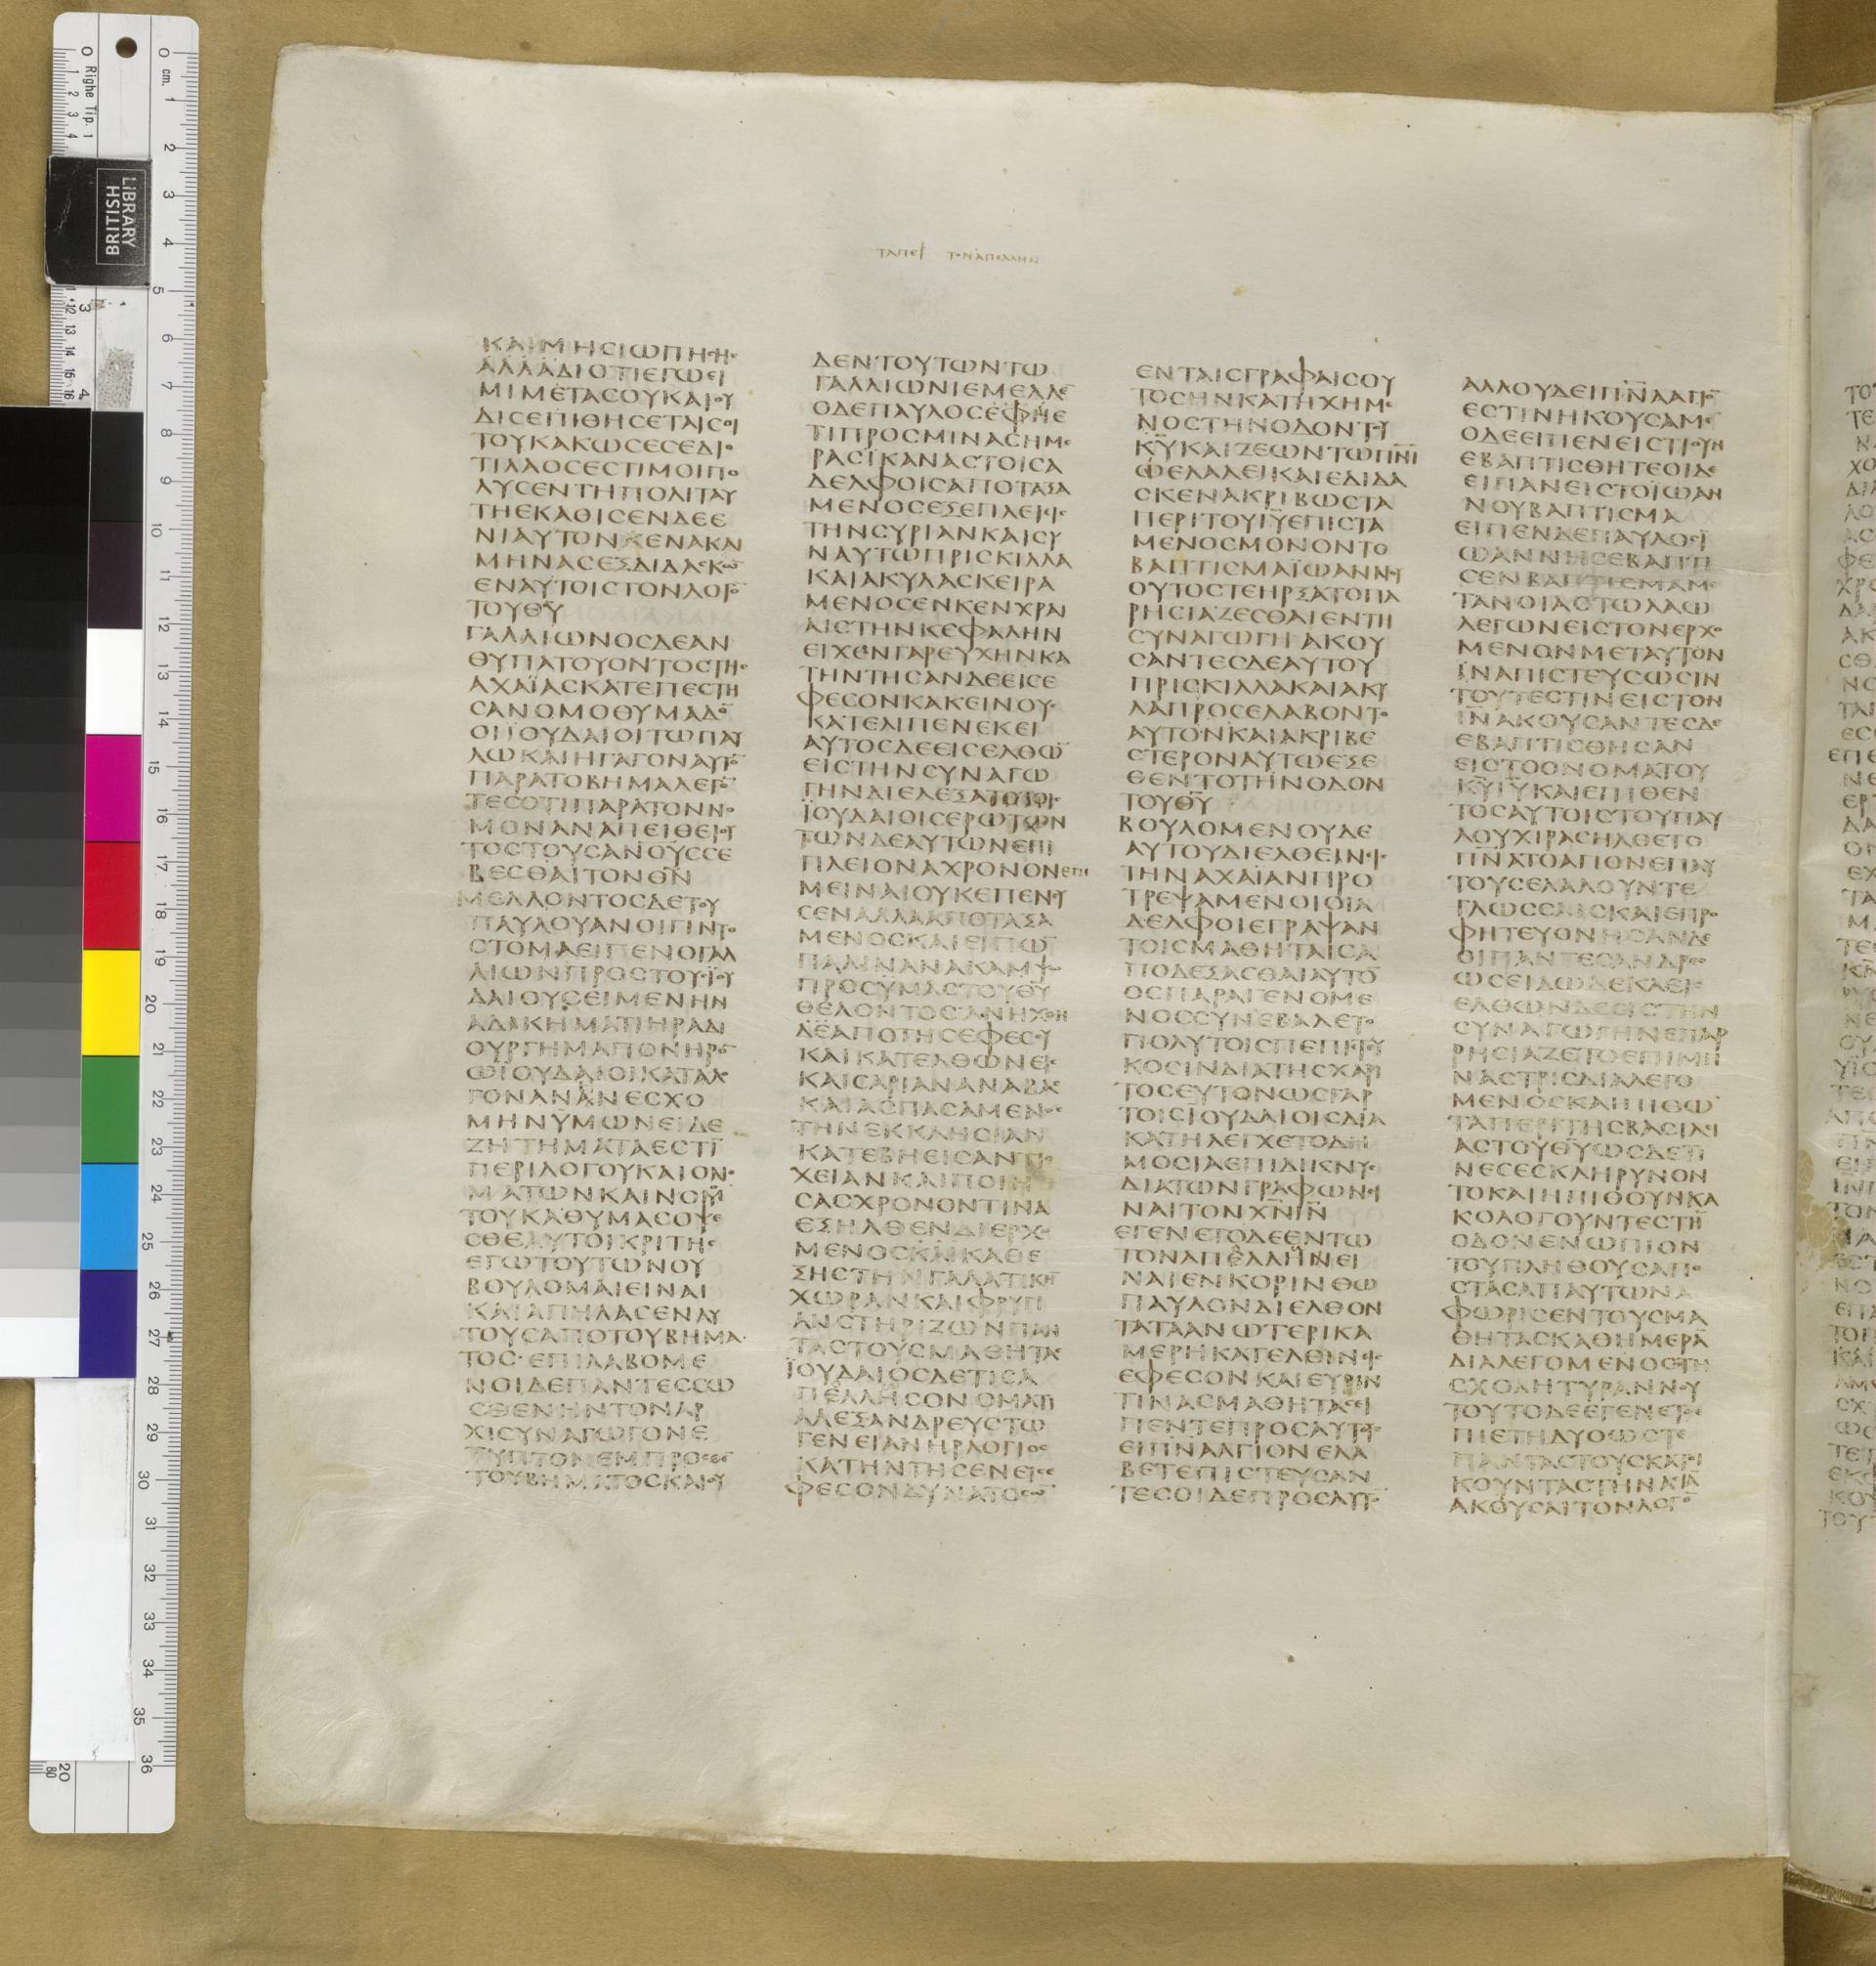 ΤΟΝ ΑΠΕΛΛΗΝ
ΚΑΙΜΗCΙΩΠΗCΗC
ΑΛΛΑΔΙΟΤΙΕΓΩΕΙ
ΜΙΜΕΤΑCΟΥΚΑΙΟΥ
ΔΙCΕΠΙΘΗCΕΤΑΙCΟΙ
ΤΟΥΚΑΚΩCΕCΕΔΙΟ
ΤΙΛΑΟCΕCΤΙΜΟΙΠΟ
ΛΥCΕΝΤΗΠΟΛΙΤΑΥ
ΤΗΕΚΑΘΙCΕΝΔΕΕ
ΝΙΑΥΤΟΝΚΕΝΑΚΑΙ
ΜΗΝΑCΕΞΔΙΔΑCΚΩ
ΕΝΑΥΤΟΙCΤΟΝΛΟΓΟ̅
ΤΟΥΘ̅Υ̅
ΓΑΛΛΙΩΝΟCΔΕΑΝ
ΘΥΠΑΤΟΥΟΝΤΟCΤΗC
ΑΧΑΪΑCΚΑΤΕΠΕCΤΗ
CΑΝΟΜΟΘΥΜΑΔΟ̅
ΟΙΪΟΥΔΑΙΟΙΤΩΠΑΥ
ΛΩΚΑΙΗΓΑΓΟΝΑΥΤΟ̅
ΠΑΡΑΤΟΒΗΜΑΛΕΓΟ̅
ΤΕCΟΤΙΠΑΡΑΤΟΝΝΟ
ΜΟΝΑΝΑΠΕΙΘΕΙΟΥ
ΤΟCΤΟΥCΑΝΟΥCCΕ
ΒΕCΘΑΙΤΟΝΘ̅Ν̅
ΜΕΛΛΟΝΤΟCΔΕΤΟΥ
ΠΑΥΛΟΥΑΝΟΙΓΙΝΤΟ
CΤΟΜΑΕΙΠΕΝΟΓΑΛ
ΛΙΩΝΠΡΟCΤΟΥCΪΟΥ
ΔΑΙΟΥCΕΙΜΕΝΗΝ
ΑΔΙΚΗΜΑΤΙΗΡΑΔΙ
ΟΥΡΓΗΜΑΠΟΝΗΡΟ̅
ΩΪΟΥΔΑΙΟΙΚΑΤΑΛΟ
ΓΟΝΑΝΑΝΕCΧΟ
ΜΗΝΥΜΩΝΕΙΔΕ
ΖΗΤΗΜΑΤΑΕCΤΙ̅
ΠΕΡΙΛΟΓΟΥΚΑΙΟΝΟ
ΜΑΤΩΝΚΑΙΝΟΜΟΥ
ΤΟΥΚΑΘΥΜΑCΟΨΕ
CΘΕΑΥΤΟΙΚΡΙΤΗC
ΕΓΩΤΟΥΤΩΝΟΥ
ΒΟΥΛΟΜΑΙΕΙΝΑΙ
ΚΑΙΑΠΗΛΑCΕΝΑΥ
ΤΟΥCΑΠΟΤΟΥΒΗΜΑ
ΤΟCΕΠΙΛΑΒΟΜΕ
ΝΟΙΔΕΠΑΝΤΕCCΩ
CΘΕΝΗΝΤΟΝΑΡ
ΧΙCΥΝΑΓΩΓΟΝΕ
ΤΥΠΤΟΝΕΜΠΡΟCΘΕ̅
ΤΟΥΒΗΜΑΤΟCΚΑΙΟΥ
ΔΕΝΤΟΥΤΩΝΤΩ
ΓΑΛΛΙΩΝΙΕΜΕΛΛΕ̅
ΟΔΕΠΑΥΛΟCΕΦΗΕ
ΤΙΠΡΟCΜΙΝΑCΗΜΕ
ΡΑCΪΚΑΝΑCΤΟΙCΑ
ΔΕΛΦΟΙCΑΠΟΤΑΞΑ
ΜΕΝΟCΕΞΕΠΛΕΙΕΙC
ΤΗΝCΥΡΙΑΝΚΑΙCΥ
ΝΑΥΤΩΠΡΙCΚΙΛΛΑ
ΚΑΙΑΚΥΛΑCΚΕΙΡΑ
ΜΕΝΟCΕΝΚΕΝΧΡΑΙ
ΑΙCΤΗΝΚΕΦΑΛΗΝ
ΕΙΧΕΝΓΑΡΕΥΧΗΝΚΑ
ΤΗΝΤΗCΑΝΔΕΕΙCΕ
ΦΕCΟΝΚΑΚΕΙΝΟΥC
ΚΑΤΕΛΙΠΕΝΕΚΕΙ
ΑΥΤΟCΔΕΕΙCΕΛΘΩ̅
ΕΙCΤΗΝCΥΝΑΓΩ
ΓΗΝΔΙΕΛΕΞΑΤΟΤΟΙC
ΪΟΥΔΑΙΟΙCΕΡΩΤΩΝ
ΤΩΝΔΕΑΥΤΩΝΕΠΙ
ΠΛΕΙΟΝΑΧΡΟΝΟΝΕΠΙ
ΜΕΙΝΑΙΟΥΚΕΠΕΝΕΥ
CΕΝΑΛΛΑΑΠΟΤΑΞΑ
ΜΕΝΟCΚΑΙΕΙΠΩ̅
ΠΑΛΙΝΑΝΑΚΑΜΨΩ
ΠΡΟCΥΜΑCΤΟΥΘ̅Υ̅
ΘΕΛΟΝΤΟCΑΝΗΧΘΗ
ΔΕΑΠΟΤΗCΕΦΕCΟΥ
ΚΑΙΚΑΤΕΛΘΩΝΕΙC
ΚΑΙCΑΡΙΑΝΑΝΑΒΑC
ΚΑΙΑCΠΑCΑΜΕΝΟC
ΤΗΝΕΚΚΛΗCΙΑΝ
ΚΑΤΕΒΗΕΙCΑΝΤΙΟ
ΧΕΙΑΝΚΑΙΠΟΙΗ
CΑCΧΡΟΝΟΝΤΙΝΑ
ΕΞΗΛΘΕΝΔΙΕΡΧΟ
ΜΕΝΟCΚΑΙΚΑΘΕ
ΞΗCΤΗΝΓΑΛΑΤΙΚΗ̅
ΧΩΡΑΝΚΑΙΦΡΥΓΙ
ΑΝCΤΗΡΙΖΩΝΠΑΝ
ΤΑCΤΟΥCΜΑΘΗΤΑC
ΪΟΥΔΑΙΟCΔΕΤΙCΑ
ΠΕΛΛΗCΟΝΟΜΑΤΙ
ΑΛΕΞΑΝΔΡΕΥCΤΩ
ΓΕΝΕΙΑΝΗΡΛΟΓΙΟC
ΚΑΤΗΝΤΗCΕΝΕΙCΕ
ΦΕCΟΝΔΥΝΑΤΟCΩ̅
ΕΝΤΑΙCΓΡΑΦΑΙCΟΥ
ΤΟCΗΝΚΑΤΗΧΗΜΕ
ΝΟCΤΗΝΟΔΟΝΤΟΥ
Κ̅Υ̅ΚΑΙΖΕΩΝΤΩΠ̅Ν̅Ι̅
ΕΛΑΛΕΙΚΑΙΕΔΙΔΑ
CΚΕΝΑΚΡΙΒΩCΤΑ
ΠΕΡΙΤΟΥΙ̅Υ̅ΕΠΙCΤΑ
ΜΕΝΟCΜΟΝΟΝΤΟ
ΒΑΠΤΙCΜΑΪΩΑΝΝΟΥ
ΟΥΤΟCΤΕΗΡΞΑΤΟΠΑ
ΡΗCΙΑΖΕCΘΑΙΕΝΤΗ
CΥΝΑΓΩΓΗΑΚΟΥ
CΑΝΤΕCΔΕΑΥΤΟΥ
ΠΡΙCΚΙΛΛΑΚΑΙΑΚΥ
ΛΑΠΡΟCΕΛΑΒΟΝΤΟ
ΑΥΤΟΝΚΑΙΑΚΡΙΒΕ
CΤΕΡΟΝΑΥΤΩΕΞΕ
ΘΕΝΤΟΤΗΝΟΔΟΝ
ΤΟΥΘ̅Υ̅
ΒΟΥΛΟΜΕΝΟΥΔΕ
ΑΥΤΟΥΔΙΕΛΘΕΙΝΕΙC
ΤΗΝΑΧΑΪΑΝΠΡΟ
ΤΡΕΨΑΜΕΝΟΙΟΙΑ
ΔΕΛΦΟΙΕΓΡΑΨΑΝ
ΤΟΙCΜΑΘΗΤΑΙCΑ
ΠΟΔΕΞΑCΘΑΙΑΥΤΟ̅
ΟCΠΑΡΑΓΕΝΟΜΕ
ΝΟCCΥΝΕΒΑΛΕΤΟ
ΠΟΛΥΤΟΙCΠΕΠΙCΤΕΥ
ΚΟCΙΝΔΙΑΤΗCΧΑΡΙ
ΤΟCΕΥΤΟΝΩCΓΑΡ
ΤΟΙCΙΟΥΔΑΙΟΙCΔΙΑ
ΚΑΤΗΛΕΓΧΕΤΟΔΗ
ΜΟCΙΑΕΠΙΔΙΚΝΥC
ΔΙΑΤΩΝΓΡΑΦΩΝΕΙ
ΝΑΙΤΟΝΧ̅Ν̅Ι̅Ν̅
ΕΓΕΝΕΤΟΔΕΕΝΤΩ
ΤΟΝΑΠΕΛΛΗΝΕΙ
ΝΑΙΕΝΚΟΡΙΝΘΩ
ΠΑΥΛΟΝΔΙΕΛΘΟΝ
ΤΑΤΑΑΝΩΤΕΡΙΚΑ
ΜΕΡΗΚΑΤΕΛΘΙΝΕΙC
ΕΦΕCΟΝΚΑΙΕΥΡΙΝ
ΤΙΝΑCΜΑΘΗΤΑCΕΙ
ΠΕΝΤΕΠΡΟCΑΥΤΟΥC
ΕΙΠ̅Ν̅ΑΑΓΙΟΝΕΛΑ
ΒΕΤΕΠΙCΤΕΥCΑΝ
ΤΕCΟΙΔΕΠΡΟCΑΥΤΟ̅
ΑΛΛΟΥΔΕΙΠ̅Ν̅ΑΑΓΙΟ̅
ΕCΤΙΝΗΚΟΥCΑΜΕ̅
ΟΔΕΕΙΠΕΝΕΙCΤΙΟΥΝ
ΕΒΑΠΤΙCΘΗΤΕΟΙΔΕ
ΕΙΠΑΝΕΙCΤΟΪΩΑΝ
ΝΟΥΒΑΠΤΙCΜΑ
ΕΙΠΕΝΔΕΠΑΥΛΟCΪ
ΩΑΝΝΗCΕΒΑΠΤΙ
CΕΝΒΑΠΤΙCΜΑΜΕ
ΤΑΝΟΙΑCΤΩΛΑΩ
ΛΕΓΩΝΕΙCΤΟΝΕΡΧΟ
ΜΕΝΟΝΜΕΤΑΥΤΟΝ
ΪΝΑΠΙCΤΕΥCΩCΙΝ
ΤΟΥΤΕCΤΙΝΕΙCΤΟΝ
Ι̅Ν̅ΑΚΟΥCΑΝΤΕCΔΕ
ΕΒΑΠΤΙCΘΗCΑΝ
ΕΙCΤΟΟΝΟΜΑΤΟΥ
Κ̅Υ̅Ι̅Υ̅ΚΑΙΕΠΙΘΕΝ
ΤΟCΑΥΤΟΙCΤΟΥΠΑΥ
ΛΟΥΧΙΡΑCΗΛΘΕΤΟ
Π̅Ν̅ΑΤΟΑΓΙΟΝΕΠΑΥ
ΤΟΥCΕΛΑΛΟΥΝΤΕ
ΓΛΩCCΑΙCΚΑΙΕΠΡΟ
ΦΗΤΕΥΟΝΗCΑΝΔΕ
ΟΙΠΑΝΤΕCΑΝΔΡΕC
ΩCΕΙΔΩΔΕΚΑΕΙC
ΕΛΘΩΝΔΕΕΙCΤΗΝ
CΥΝΑΓΩΓΗΝΕΠΑΡ
ΡΗCΙΑΖΕΤΟΕΠΙΜΗ
ΝΑCΤΡΙCΔΙΑΛΕΓΟ
ΜΕΝΟCΚΑΙΠΙΘΩ̅
ΤΑΠΕΡΙΤΗCΒΑCΙΛΕΙ
ΑCΤΟΥΘ̅Υ̅ΩCΔΕΤΙ
ΝΕCΕCΚΛΗΡΥΝΟΝ
ΤΟΚΑΙΗΠΙΘΟΥΝΚΑ
ΚΟΛΟΓΟΥΝΤΕCΤΗ̅
ΟΔΟΝΕΝΩΠΙΟΝ
ΤΟΥΠΛΗΘΟΥCΑΠΟ
CΤΑCΑΠΑΥΤΩΝΑ
ΦΩΡΙCΕΝΤΟΥCΜΑ
ΘΗΤΑCΚΑΘΗΜΕΡΑ̅
ΔΙΑΛΕΓΟΜΕΝΟCΕΝΤΗ
CΧΟΛΗΤΥΡΑΝΝΟΥ
ΤΟΥΤΟΔΕΕΓΕΝΕΤΟΕ
ΠΙΕΤΗΔΥΟΩCΤΕ
ΠΑΝΤΑCΤΟΥCΚΑΤΟΙ
ΚΟΥΝΤΑCΤΗΝΑCΙΑ̅
ΑΚΟΥCΑΙΤΟΝΛΟΓΟ̅
0 Righe Tip. 1
0 cm. 1
2
3
4
5
6
7
8
9
10
11
12
13
14
15
16
17
18
19
20
21
22
23
24
25
26
27
28
29
30
31
32
33
34
35
36
BRITISH
LIBRARY